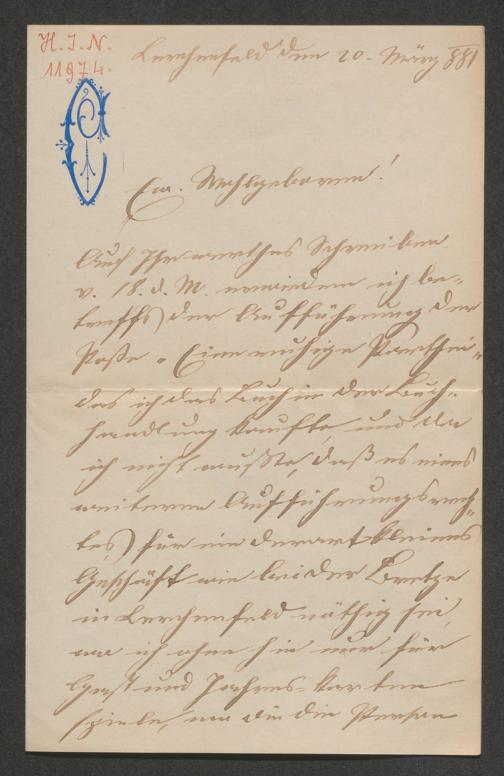 H. I. N.
11974.
Lerchenfeld den 20. März 881
Ew. Wohlgeboren!
Auf Ihr werthes Schreiben
v. 18. d. M. erwiedere ich be-
treffs der Aufführung der
Poße „Eine ruhige Parthei"
das ich das Buch in der Buch-
handlung kaufte, und da
ich nicht wußte, daß es eines
weiteren Aufführungsrech-
tes) für ein derart kleines
Geschäft wie bei der Bretze
in Lerchenfeld nöthig sei,
wo ich ohne hin nur für
Gast und Jahres-Karten
spiele, wo die Person